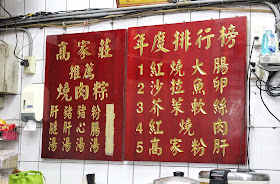 高家莊
推薦
燒肉粽
粉腸湯
豬心湯
豬肝湯
肝腱湯
年度排行榜
1 紅燒大腸
2 沙拉魚卵
3 芥茉軟絲
4 紅燒肉
5 高家粉肝